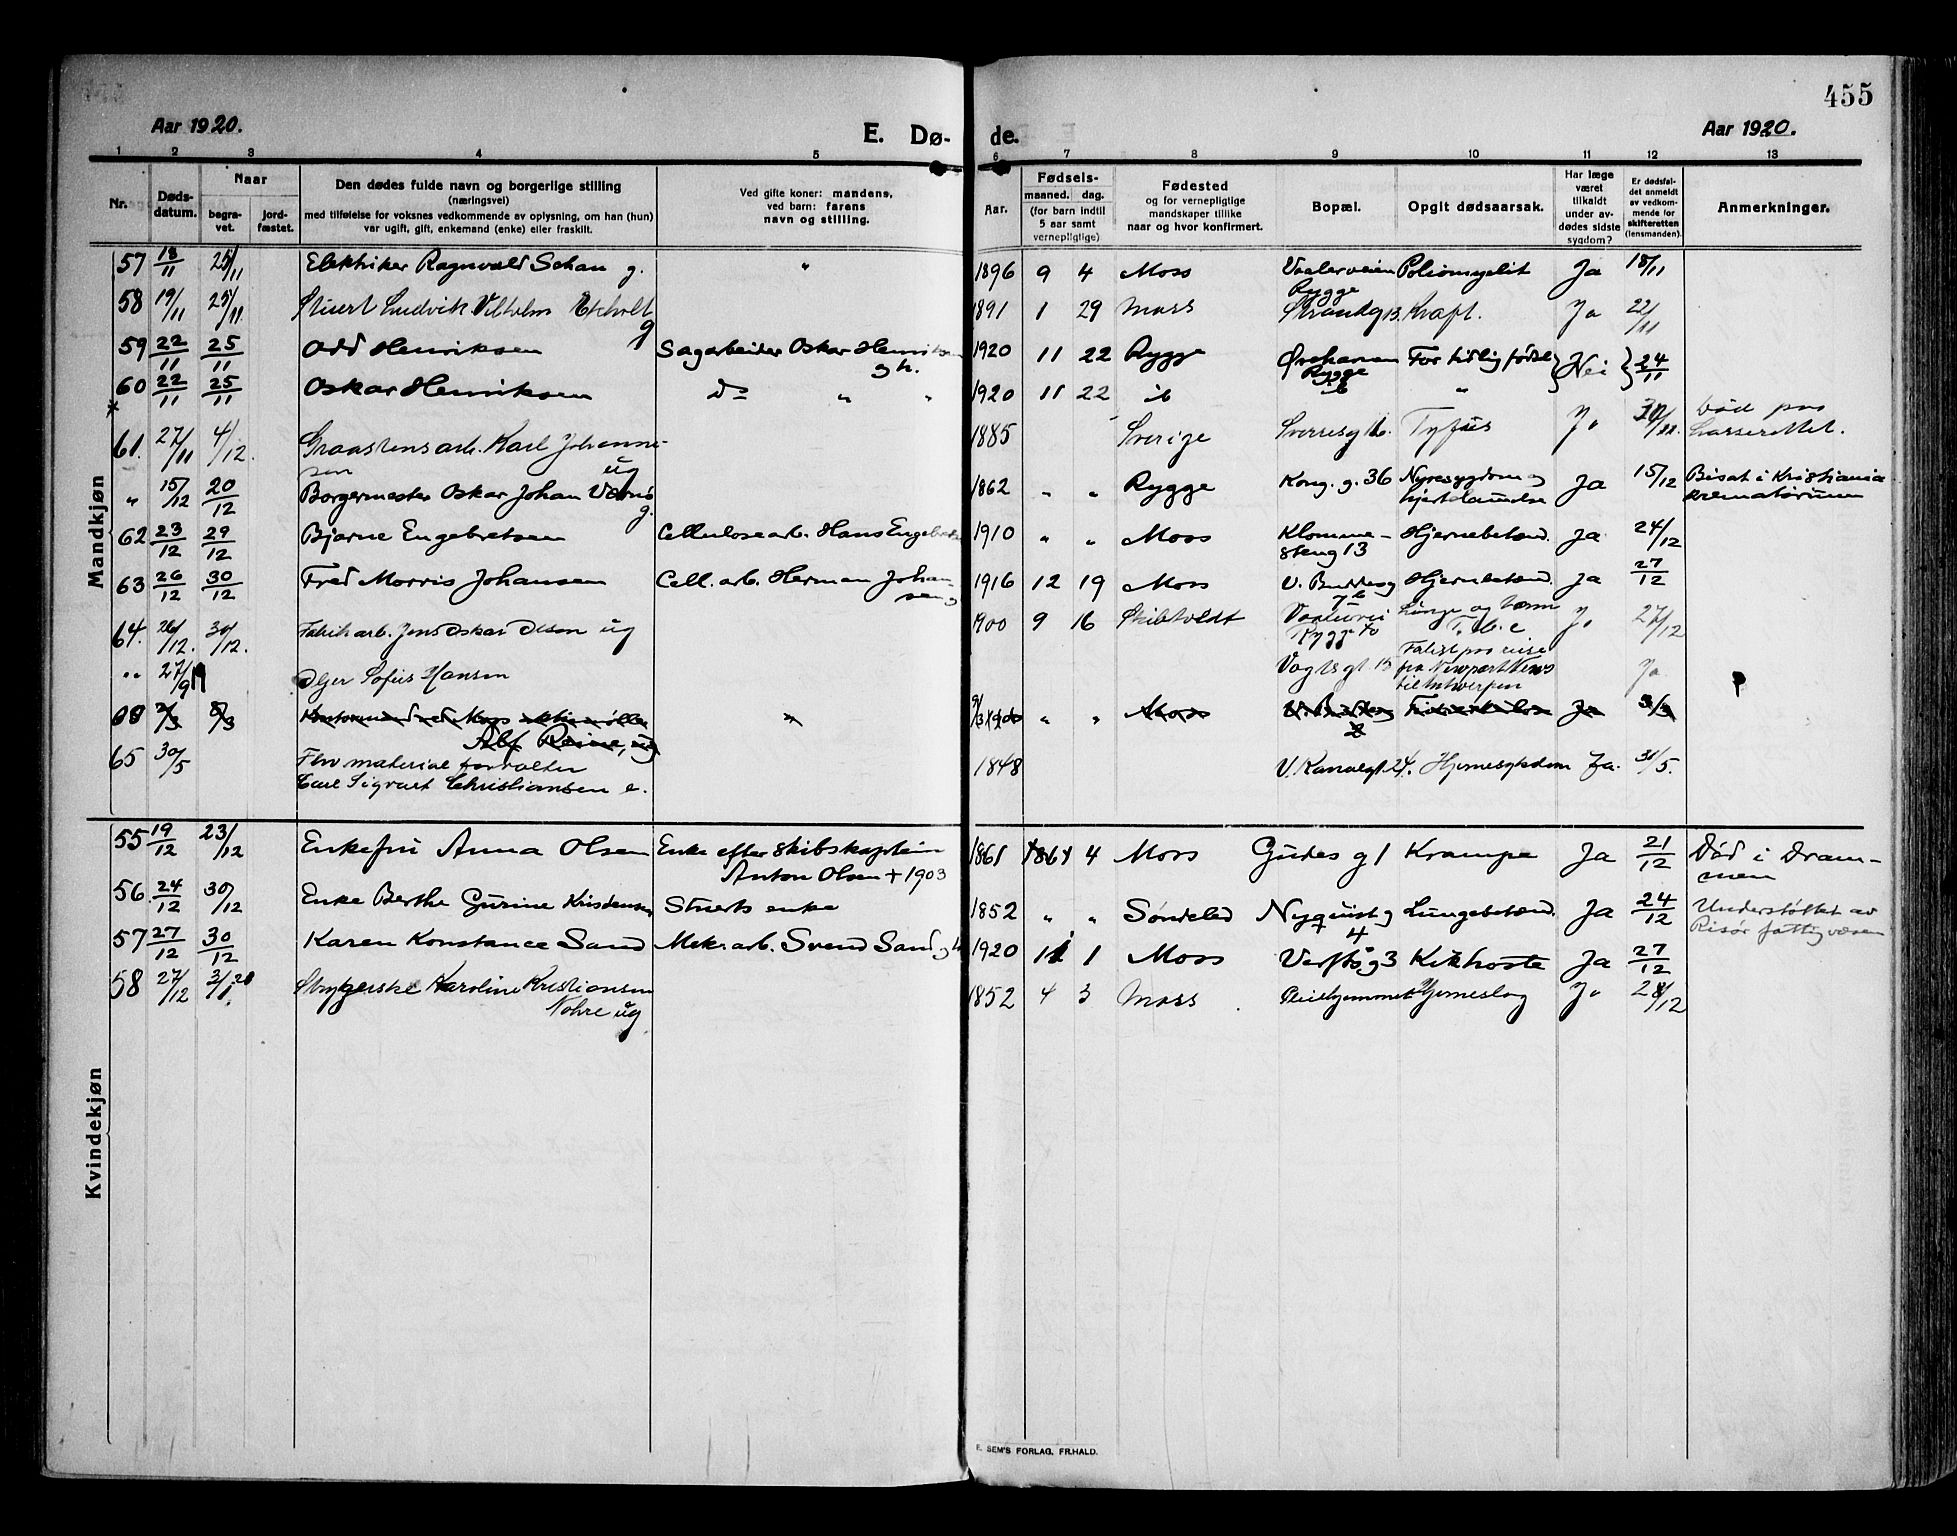 455
Aar 1920.
E. Dø- de.
Aar 1920.
1 2 3 4 5 6 7 8 9 10 11 12 13
Nr.
Døds-
datum.
Naar
begra-
vet.
jord-
fæstet.
Den dødes fulde navn og borgerlige stilling
(næringsvei)
med tilføielse for voksnes vedkommende av oplysning, om han (hun)
var ugift, gift, enkemand (enke) eller fraskilt.
Ved gifte koner: mandens,
ved barn: farens
navn og stilling.
Aar.
Fødsels-
maaned. dag.
(for barn indtil
5 aar samt
vernepligtige)
Fødested
og for vernepligtige
mandskaper tillike
naar og hvor konfirmert.
Bopæl.
Opgit dødsaarsak.
Har læge
været
tilkaldt
under av-
dødes sidste
sygdom?
Er dødsfal-
det anmeldt
av vedkom-
mende for
skifteretten
(lensmanden).
Anmerkninger.
Mandkjøn
57 18/11 25/11 Elektriker Ragnvald Schau g. " 1896 9 4 Moss Vaalerveien Poliomyelit Ja 18/11
Rygge
58 19/11 25/11 Stuert Ludvik Vilhelm g 1891 1 29 Moss Strandg 13. Kraft. Ja 22/11
59 22/11 25/11 Odd Henriksen Sagarbeider Oskar Henriksen 1920 11 22 Rygge Rygge For tidlig fødsel Nei 24/11
g h.
60 22/11 25/11 Oskar Henriksen do " " 1920 11 22 ib ib "
61. 27/11 4/12. Graastensarb. Karl Johanne-
sen ug 1885 Sverige Sverresg 16. Tyfus Ja Død paa
Lasserettet.
" 15/12 20/12 Borgermester Oskar Johan g. 1862 " " Rygge Kong. g. 36 Nyresygdom og Ja 15/12 Bisat i Kristiania
krematorium
62 23/12 29/12 Bjarne Engebretsen Cellulosearb. Hans Engebretsen 1910 " " Moss Klomme-
steng 13 Hjernebetænd. Ja 24/12
63 26/12 30/12 Fred Morris Johansen Cell. arb. Herman Johan-
sen 1916 12 19 Moss V. Buddesg Hjernebetænd. Ja 27/12
7b
64. 26/12. 30/12. Fabrikarb. Jens Oskar Olsen ug 1900 9 16 Skibtvedt Rygge 40 Lunge og
T. b. c Ja 27/12
" 27/9 Sofus Hansen Vogtsgt 15 Forlist paa reise
fra Newport News
til Antwerpen Ja
68 2/3 8/3 Kontormand ved Moss Aktiemøller
Alf Reine, ug " " " Moss Ja 3/3
65 30/5 Fhv materialforvalter
Carl Sigvart Christiansen e. 1848 V. Kanalgt 24. Hjernesygdom Ja. 31/5.
Kvindekjøn
55 19/12 23/12 Enkefru Anna Olsen Enke efter skibskaptein
Anton Olsen + 1903 1861 4 Moss Gudes g 1 Krampe Ja 21/12 Død i Dram-
men
56 24/12 30/12 Enke Berthe Gurine Kristensen Stuerts enke 1852 " " Søndeled Nyquist g
4 Lungebetænd. Ja 24/12 Understøttet av
Risør fattigvæsen
57 27/12 30/12 Karen Konstance Sand Mek. arb. Svend Sand 1920 11 1 Moss Verftsg 3 Kikhoste Ja 27/12
58 27/12 3/1. Strygerske Karoline Kristiansen
Nøhre ug 1852 4 3 Moss Pleiehjemmet Hjerneslag Ja 28/12
E. SEM'S FORLAG, FR.HALD.